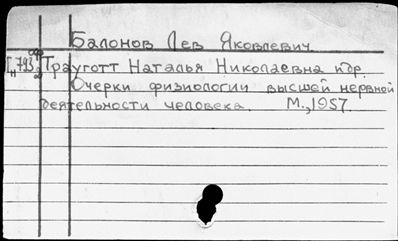 Балонов Лев Яковлевич
Траугott Наталья Николаевна и др.
Очерки физиологии высшей нервной
деятельности человека. М., 1957.